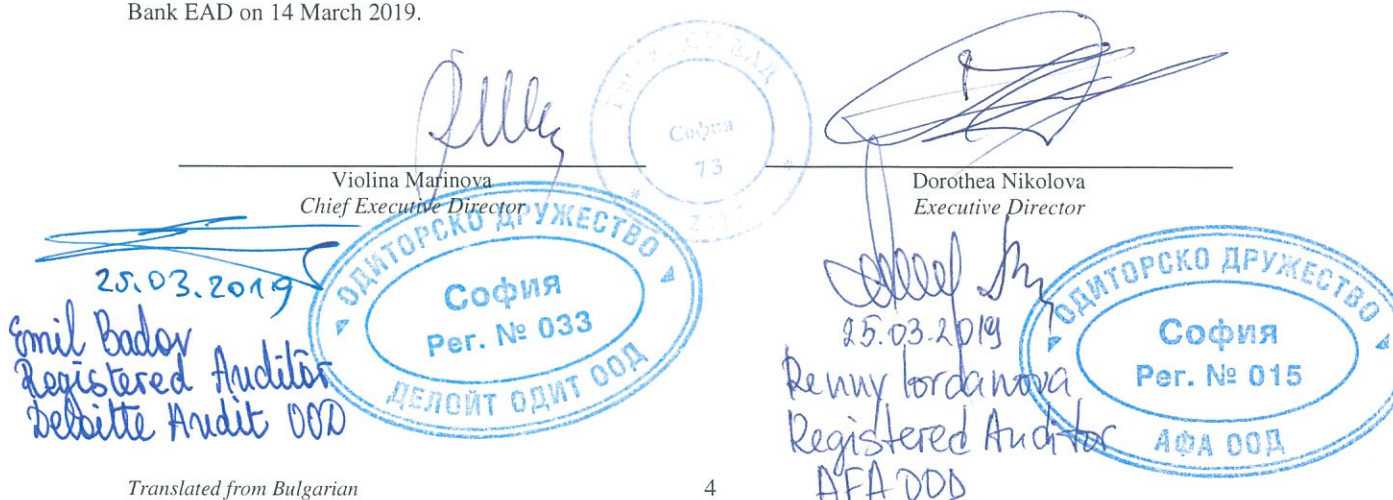 Bank EAD on 14 March 2019.
София
73
Violina Marinova
Chief Executive Director
Dorothea Nikolova
Executive Director
25.03.2019
Emil Badov
Registered Auditor
Deloitte Audit OOD
ОДИТОРСКО ДРУЖЕСТВО
София
Рег. № 033
ДЕЛОЙТ ОДИТ ООД
25.03.2019
Renny Iordanova
Registered Auditor
AFA OOD
ОДИТОРСКО ДРУЖЕСТВО
София
Рег. № 015
АФА ООД
Translated from Bulgarian
4